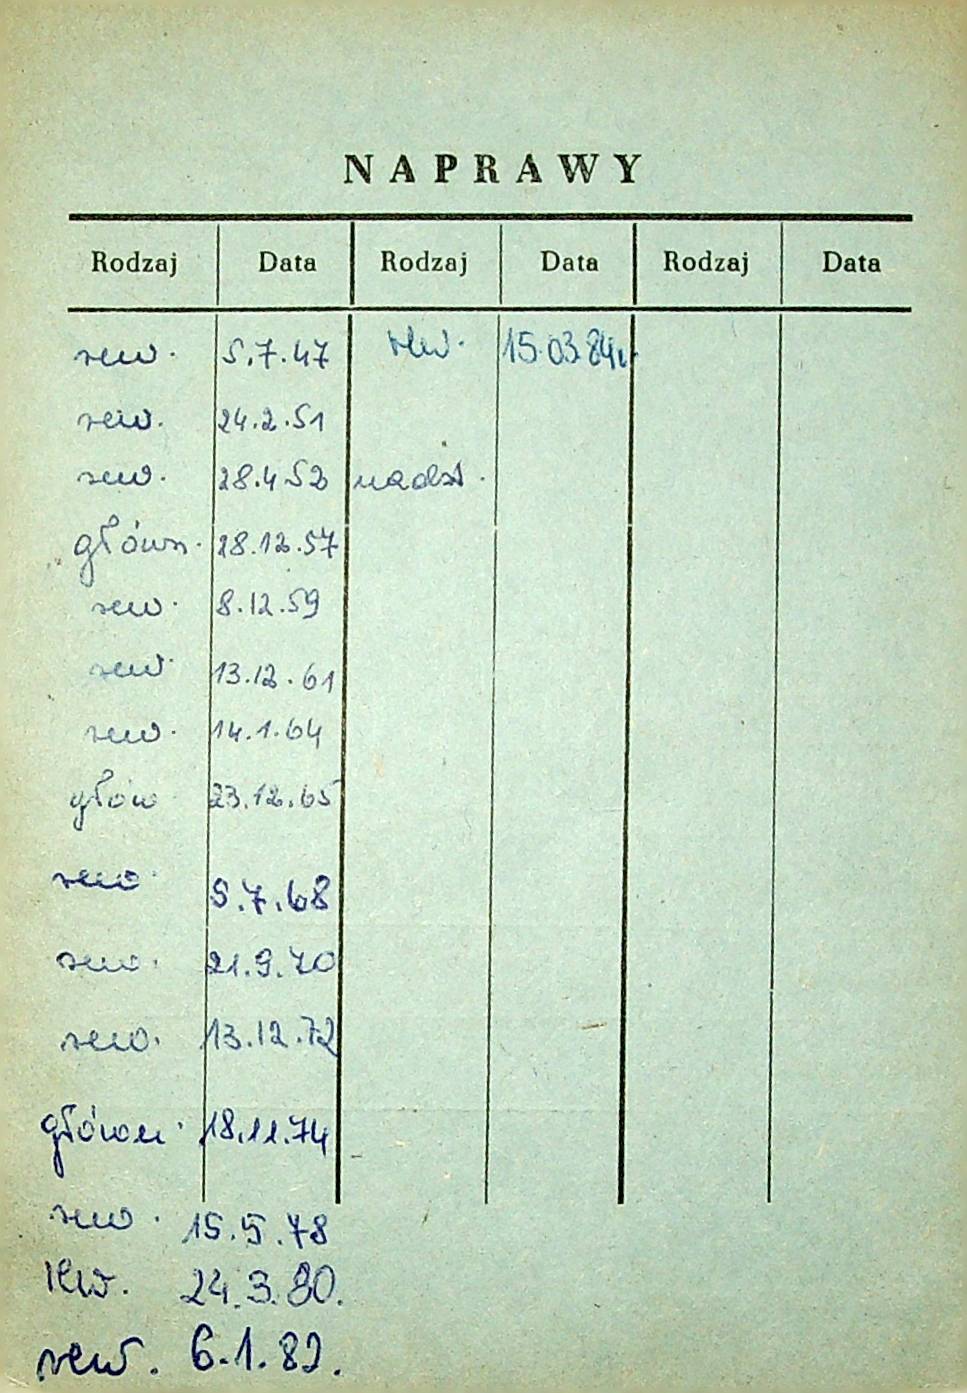 NAPRAWY
Rodzaj Data Rodzaj Data Rodzaj Data
rew. 5.7.47 rew. 15.03.84r.
rew. 24.2.51
rew. 28.4 52 nadzt.
główn. 28.12.57
rew. 8.12.59
rew. 13.12.61
rew. 14.1.64
głów 23.12.65
rew. 5.7.68
rew. 21.9.70
rew. 13.12.72
główn. 18.11.74
rew. 15.5.78
rew. 24.3.80.
rew. 6.1.82.